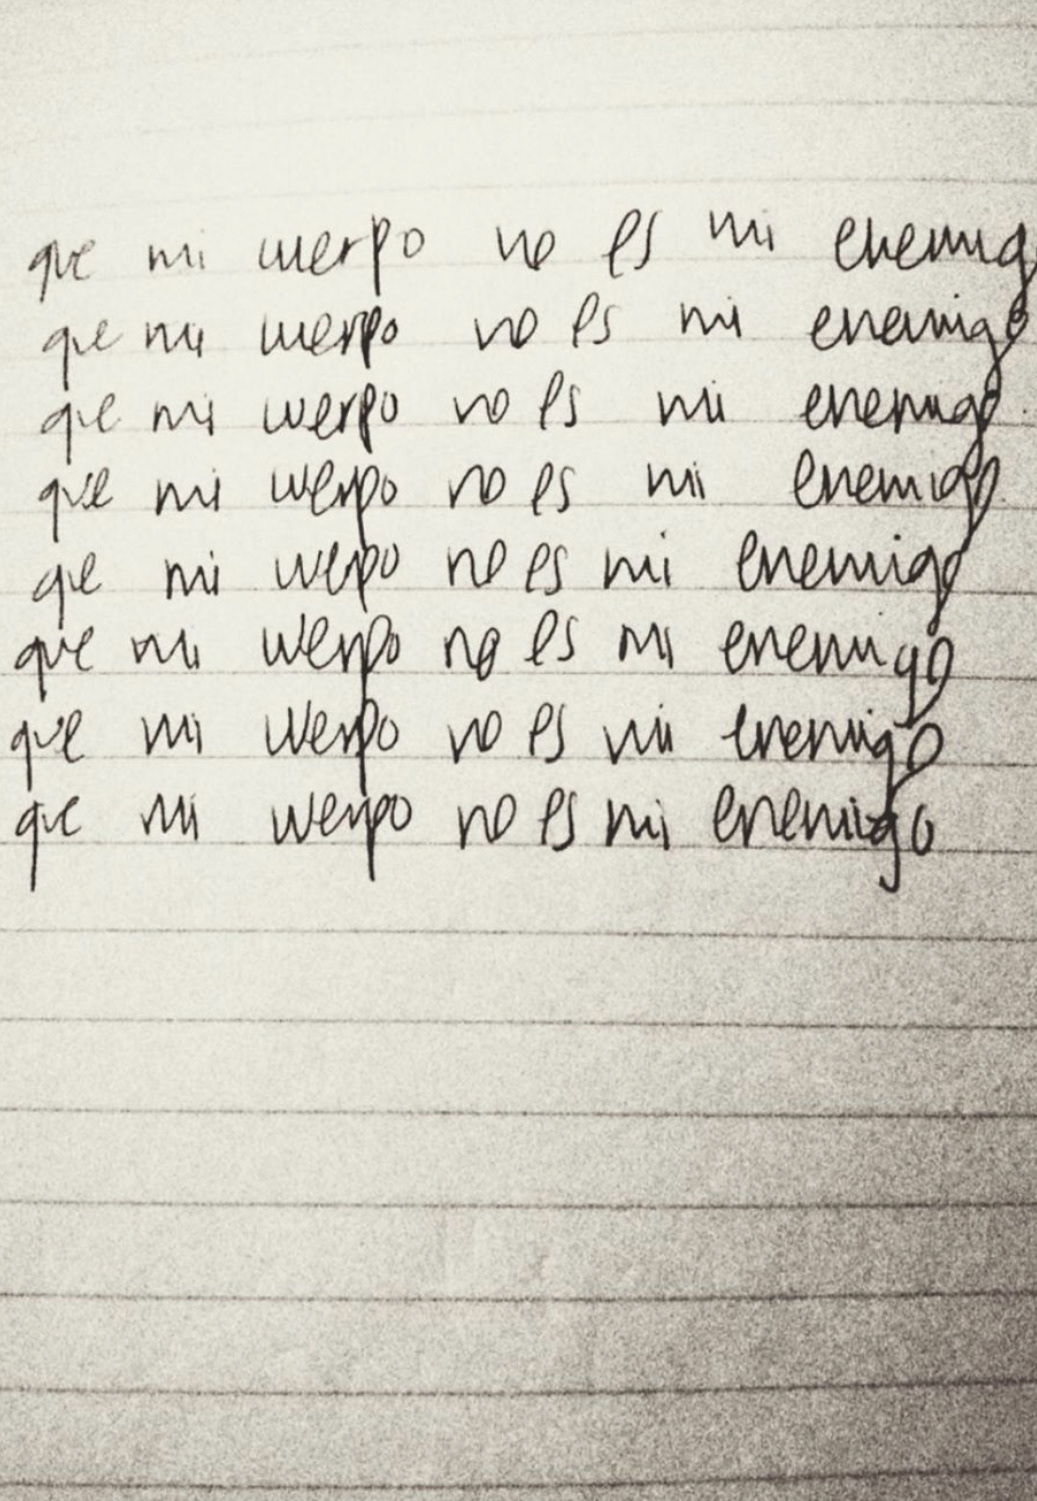 que mi cuerpo no es mi enemig
que mi cuerpo no es mi enemigo
que mi cuerpo no es mi enemigo
que mi cuerpo no es mi enemigo
que mi cuerpo no es mi enemigo
que mi cuerpo no es mi enemigo
que mi cuerpo no es mi enemigo
que mi cuerpo no es mi enemigo